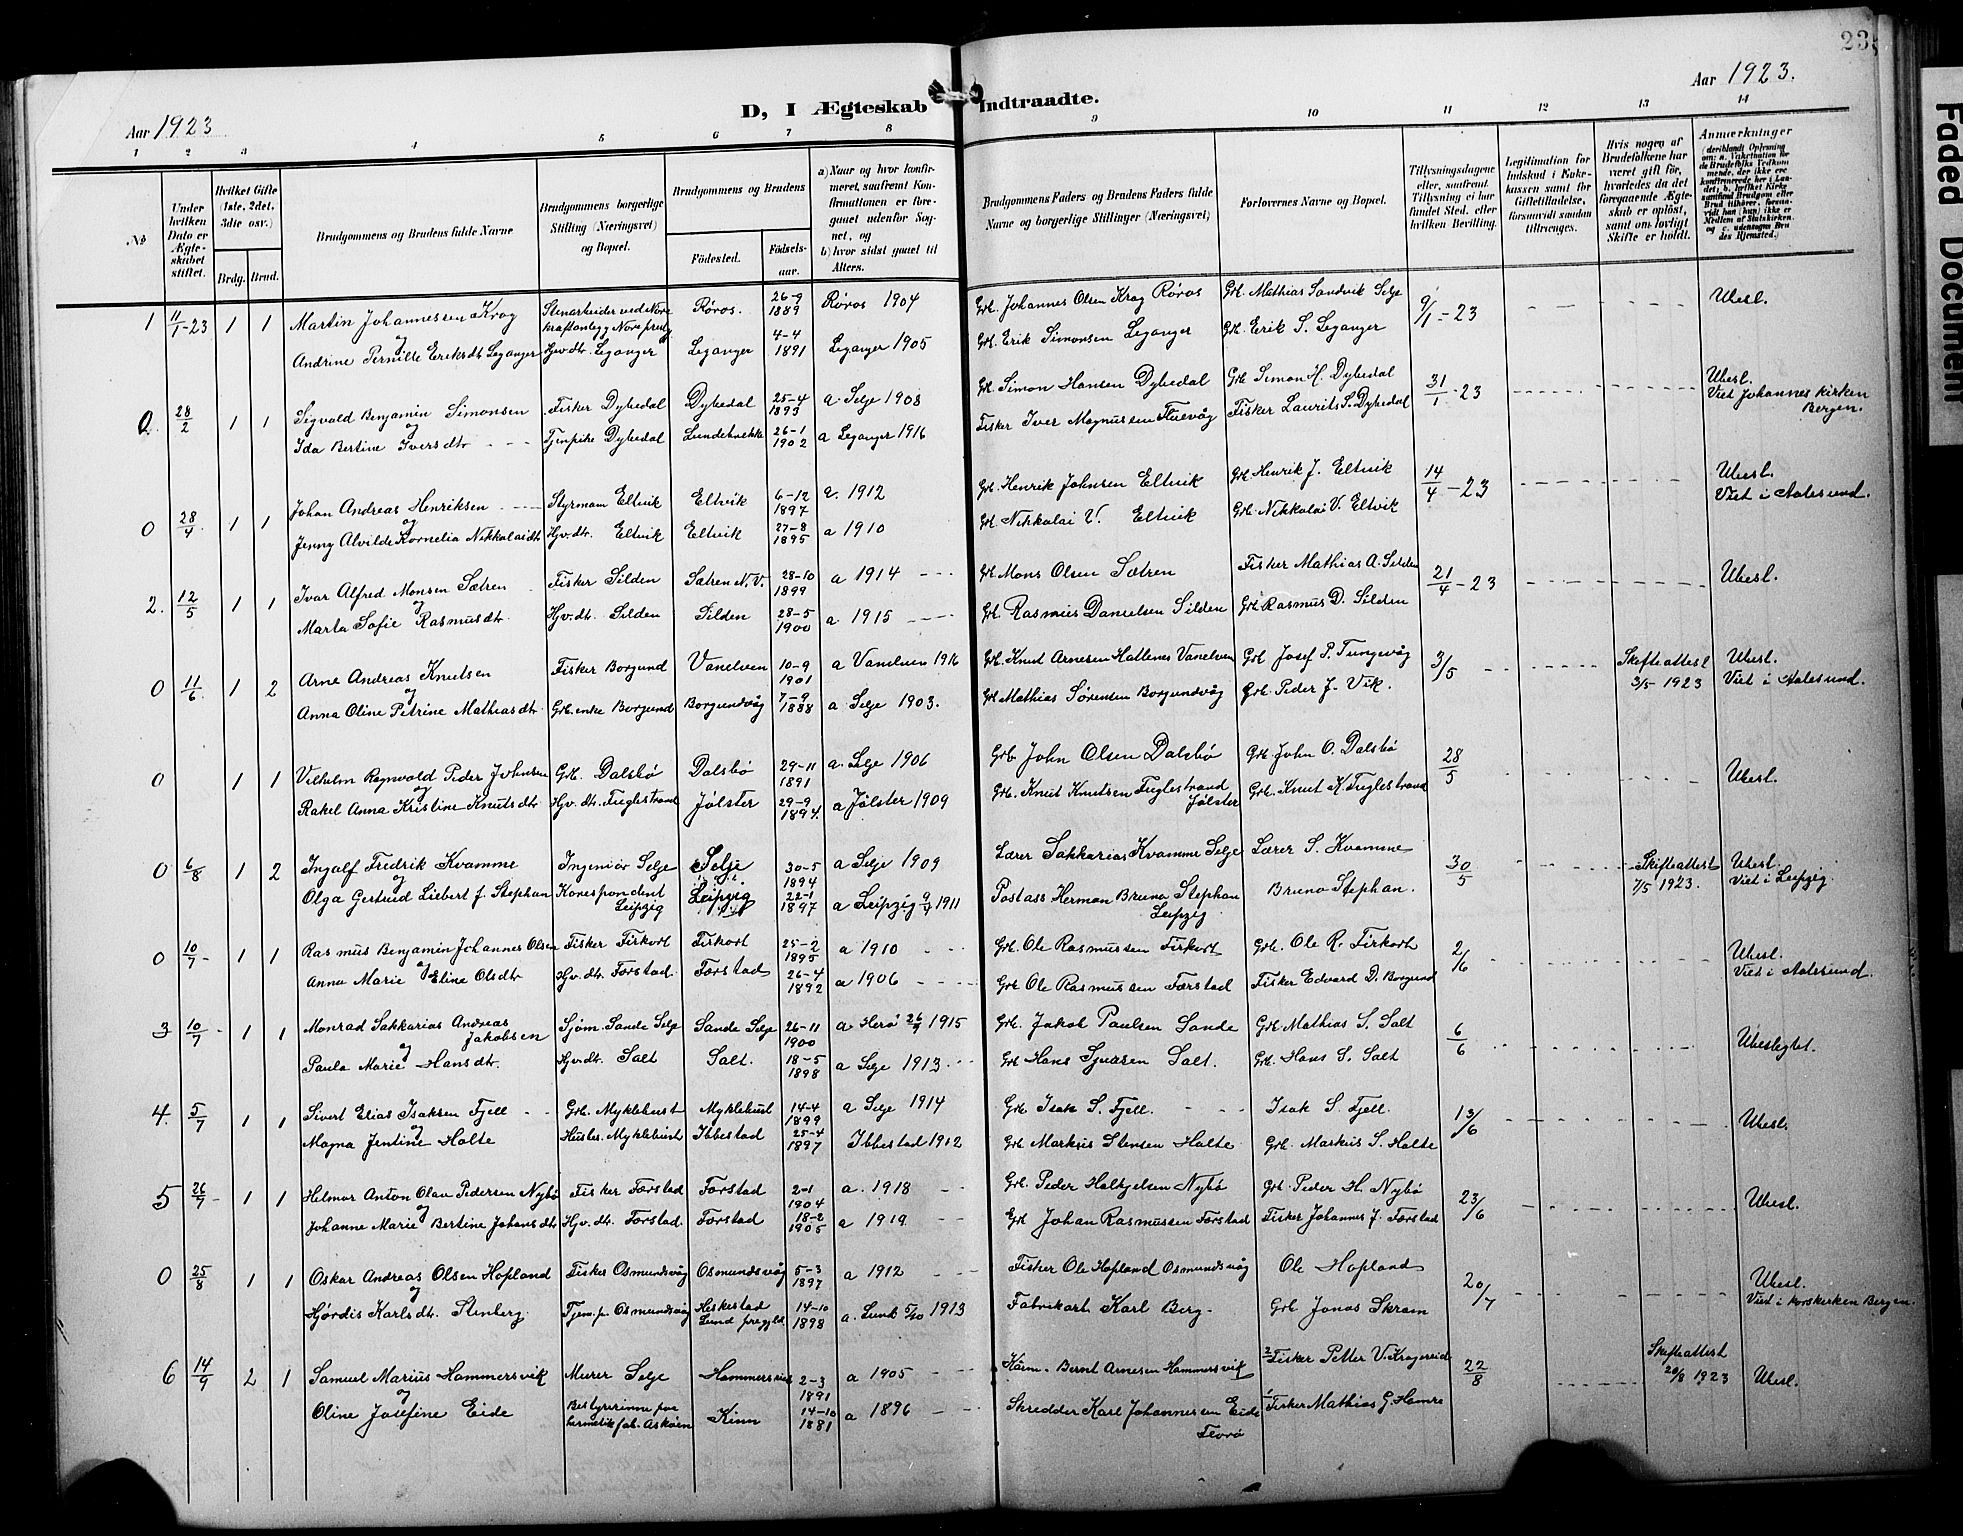 Aar 1923
D, I Ægteskab Indtraadte.
Aar 1923.
1 2 3 4 5 6 7 8 9 10 11 12 13 14
No
Under hvilken Dato er Ægteskabet stiftet.
Hvilket Gifte (1ste, 2det, 3dte osv.)
Brdg. Brud.
Brudgommens og Brudens fulde Navne
Brudgommens borgerlige Stilling (Næringsvei) og Bopæl.
Brudgommens og Brudens
Födested. Födselsaar.
a) Naar og hvor konfirmeret, saafremt Konfirmationen er foregaaet udenfor Sognet, og
b) hvor sidst gaaet til Alters.
Brudgommens Faders og Brudens Faders fulde Navne og borgerlige Stillinger (Næringsvei)
Forlovernes Navne og Bopæl.
Tillysningsdagene eller, saafremt Tillysning ei har fundet Sted, efter hvilken Bevilling.
Legitimation for Indskud i Enkekassen samt for Giftetilladelse, forsaavidt saadan tiltrænges.
Hvis nogen af Brudefolkene har været gift før, hvorledes da det foregaaende Ægteskab er oplöst, samt om lovligt Skifte er holdt.
Anmærkninger
1 11/1-23 1 1 Martin Johannessen Krog Stenarbeider ved Nore kraftanlegg Nore prestg Røros. 26-9 1889 Røros 1904 Grb. Johannes Olsen Krog Røros Grb. Mathias Sandvik Selje 9/1-23 Ubesl.
og
Andrine Pernille Eriksdtr Leganger Hjv.dtr. Leganger Leganger 4-4 1891 Leganger 1905 Grb. Erik Simonsen Leganger Grb. Erik S. Leganger
0. 28/2 1 1 Sigvald Benjamin Simonsen Fisker Dybedal Dybedal 25-4 1893 a. Selje 1908 Grb. Simon Hansen Dybedal Grb. Simon H. Dybedal 31/1-23 Ubesl. Viet Johannes kirken Bergen.
og
Ida Bertine Iversdtr Tjenpike Dybedal 26-1 1902 a Leganger 1916 Fisker Iver Magnussen Fisker Laurits S. Dybedal
0 28/4 1 1 Johan Andreas Henriksen Styrmam Eltvik Eltvik 6-12 1897 a. 1912 Grb. Henrik Johnsen Eltvik Grb. Henrik J. Eltvik 14/4-23 Ubesl. Viet i Aalesund.
og
Jenny Alvilde Kornelia Nikkolaidtr Hjv.dtr. Eltvik Eltvik 27-8 1895 a 1910 Grb. Nikkolai V. Eltvik Grb. Nikkolai V. Eltvik
2. 12/5 1 1 Ivar Alfred Monsen Sætren Fisker Silden Sætren N.V. 28-10 1899 a 1914 Grb. Mons Olsen Sætren Fisker Mathias A. Silden 21/4-23 Ubesl.
og
Marta Sofie Rasmusdtr. Hjv.dtr. Silden Silden 28-5 1900 a. 1915 Grb. Rasmus Danielsen Silden Grb. Rasmus D. Silden
0 11/6 1 2 Arne Andreas Knutsen Fisker Borgund Vanelven 10-9 1901 a Vanelven 1916 Grb. Knut Arnesen Hatlenes Vanelven Grb. Josef P. Tungevåg 3/5 Skifteattest 3/5-1923 Ubesl. Viet i Aalesund.
og
Anna Oline Petrine Mathiasdtr. Grb.enke Borgund Borgundvåg 7-9 1888 a Selje 1903. Grb. Mathias Sørensen Borgundvåg Grb. Peder J. Vik.
0 1 1 Vilhelm Ragnvald Peder Johnsen Grb. Dalsbø Dalsbø 29-11 1891 a. Selje 1906 Grb John Olsen Dalsbø Grb. John O. Dalsbø 28/5 Ubesl.
og
Rakel Anna Kristine Knutsdtr Hjv.dtr. Fuglestrand Jølster 29-9 1894. a Jølster 1909 Grb. Knut Knutsen Fuglestrand Jølster Grb. Knut K. Fuglestrand
0 6/8 1 2 Ingalf Fredrik Kvamme Ingeniør Selje Selje 30-5 1894 a Selje 1909 Lærer Sakkarias Kvamme Selje Lærer S. Kvamme 30/5 Skifteattest 7/5 1923. Ubesl. Viet i Leipzig.
og
Olga Gertrud Liebert f. Stephan Korespondent Leipzig Leipzig 22-1 1897 a Leipzig 9/4 1911 Postass Herman Bruno Stephan Leipzig Bruno Stephan.
0 10/7 1 1 Rasmus Benjamin Johannes Olsen Fisker Fiskort Fiskort 25-2 1895 a 1910 Grb. Ole Rasmussen Fiskort Grb. Ole R. Fiskort 2/6 Ubesl. Viet i Aalesund.
og
Anna Marie Eline Olsdtr Hjv.dtr. Førstad. Førstad 26-4 1892 a 1906 Grb Ole Rasmussen Førstad Fisker Edvard D. Borgund
3 10/7 1 1 Monrad Sakkarias Andreas Jakobsen Sjøm. Sande Selje Sande Selje 26-11 1900 a Herø 26/9 1915 Grb. Jakob Paulsen Sande Grb. Mathias S. Salt 6/6 Ubeslegtet.
og
Paula Marie Hansdtr. Hjv.dtr. Salt Salt. 18-5 1898 a Selje 1913 Grb Hans Sjursen Salt. Grb. Hans S. Salt
4. 5/7 1 1 Sivert Elias Isaksen Fjell Grb. Myklebust Myklebust 14-4 1899 a Selje 1914 Grb Isak S. Fjell. Isak S. Fjell. 13/6 Ubesl.
og
Magna Jentine Holte Husles. Myklebust Ibbestad 25-4 1897 Ibbestad 1912 Grb Markus Stensen Holte Grb. Markus S. Holte
5 26/7 1 1 Helmar Anton Olav Pedersen Nybø Fisker Førstad Førstad 2-1 1904 a. 1918 Grb. Peder Nybø Grb. Peder H. Nybø 23/6 Ubesl.
og
Johanne Marie Bertine Johansdtr Hjv.dtr. Førstad. Førstad 18-2 1905 a 1919 Grb Johan Rasmussen Førstad Fisker Johannes J. Førstad
0 25/8 1 1 Oskar Andreas Olsen Hopland Fisker Osmundsvåg Osmundsvåg 5-3 1897 a 1912 Fisker Ole Hopland Osmundsvåg Ole Hopland 20/7 Ubesl. Viet i Korskirken Bergen.
og
Hjørdis Karlsdtr. Stenberg Tjen.p. Osmundsvåg Heskestad Lund prgjld. 14-10 1898 a. Lund 5/10 1913 Fabrikarb Karl Berg Grb Jonas Skram
6 14/9 2 1 Samuel Marius Hammersvik Murer Selje Hammersvik 2-3 1891 a 1905 Bernt Arnesen Hammersvik 2/ Fisker Petter V. 22/8 Skifteattest 20/8 1923 Ubesl.
og
Oline Josefine Eide Bestyrerinne for hermetikfab. Askøen Kinn 14-10 1881 a 1896 Skredder Karl Johannessen Eide Florø 1/ Fisker Mathias G. Hamre
Faded Document